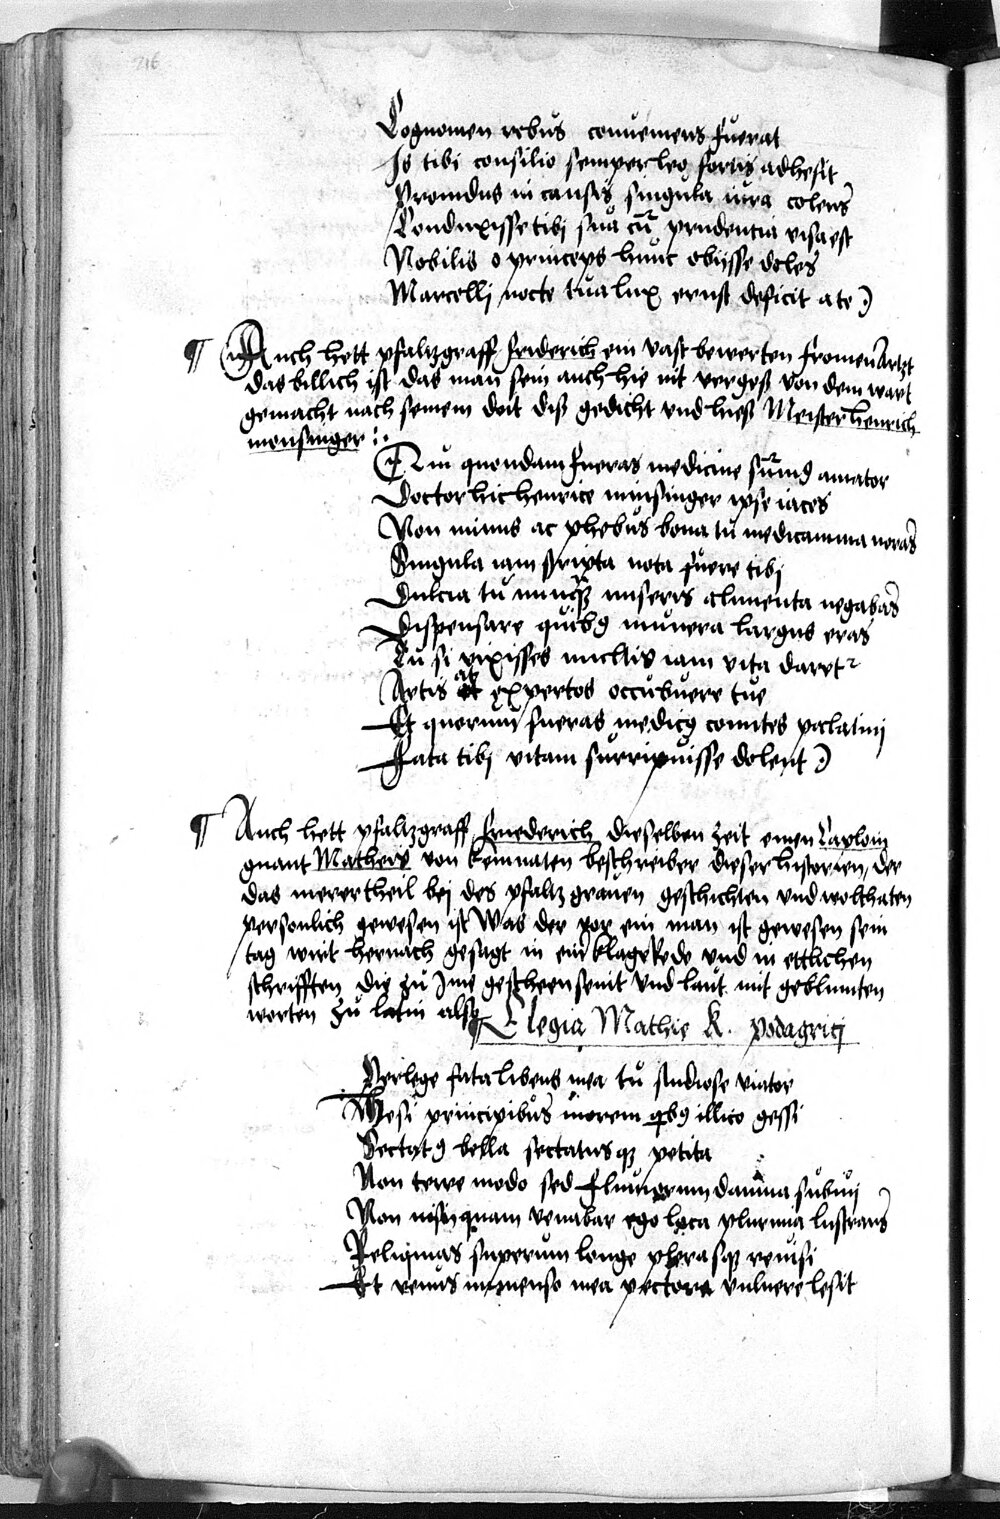 216
Cognomen rebus conueniens fuerat
Is tibi consilio semper leo fortis adhesit
Prouidus in causis singula iura colens
Conduxisse tibi sua cũ prudentia visa est
Nobilis o princeps hunc obiisse doles
Marcellj nocte tua lux ernst deficit a te
¶ Auch hett pfaltzgraff friderich ein vast bewerten fromen Artzt
das billich ist das man sein auch hie nit vergeß von dem wart
gemacht nach seinem doit diß gedicht vnd hieß Meister henrich
monsinger :.
Qui quondam fueras medicine sũmꝰ amator
Doctor hic henrice minsinger ipse iaces
Non minus ac phebus bona tu medicamina noras
Singula iam scripta nota fuere tibj
Dulcia tu nunqꝫ miseris alimenta negabas
Dispensare quibꝰ munera largus eras
Tu si vixisses multis iam vita daret
Artis at expertos occubuere tue
Et quorum fueras medicꝰ comites palatinj
Fata tibj vitam surripuisse dolent
¶ Auch hett pfaltzgraff friederich dieselben zeit einen Caploin
gnant Matheis von kemnaten beschreiber dieser historien, der
das merertheil bej des pfaltzgrauen geschichten vnd wolthaten
personlich gewesen ist Was der por ein man ist gewesen sein
tag wirt hernach gesagt in ein klagrede vnd in ettlichen
schrifften die zu Ime gescheen seint vnd laut mit geblumten
worten zu latin also Elegia Mathie K. podagricj
Perlege fata libens mea tu studiose viator
Gesi principibus morem qbꝰ illico gessi
Sectatꝰ bella sectatusqꝫ petita
Non terre modo sed fluuiorum damna subiuj
Non nusquam venabar ego loca plurima lustrans
Reliquias superum longe plerasqꝫ reuisi
Et venus immenso mea pectora vulnere lesit